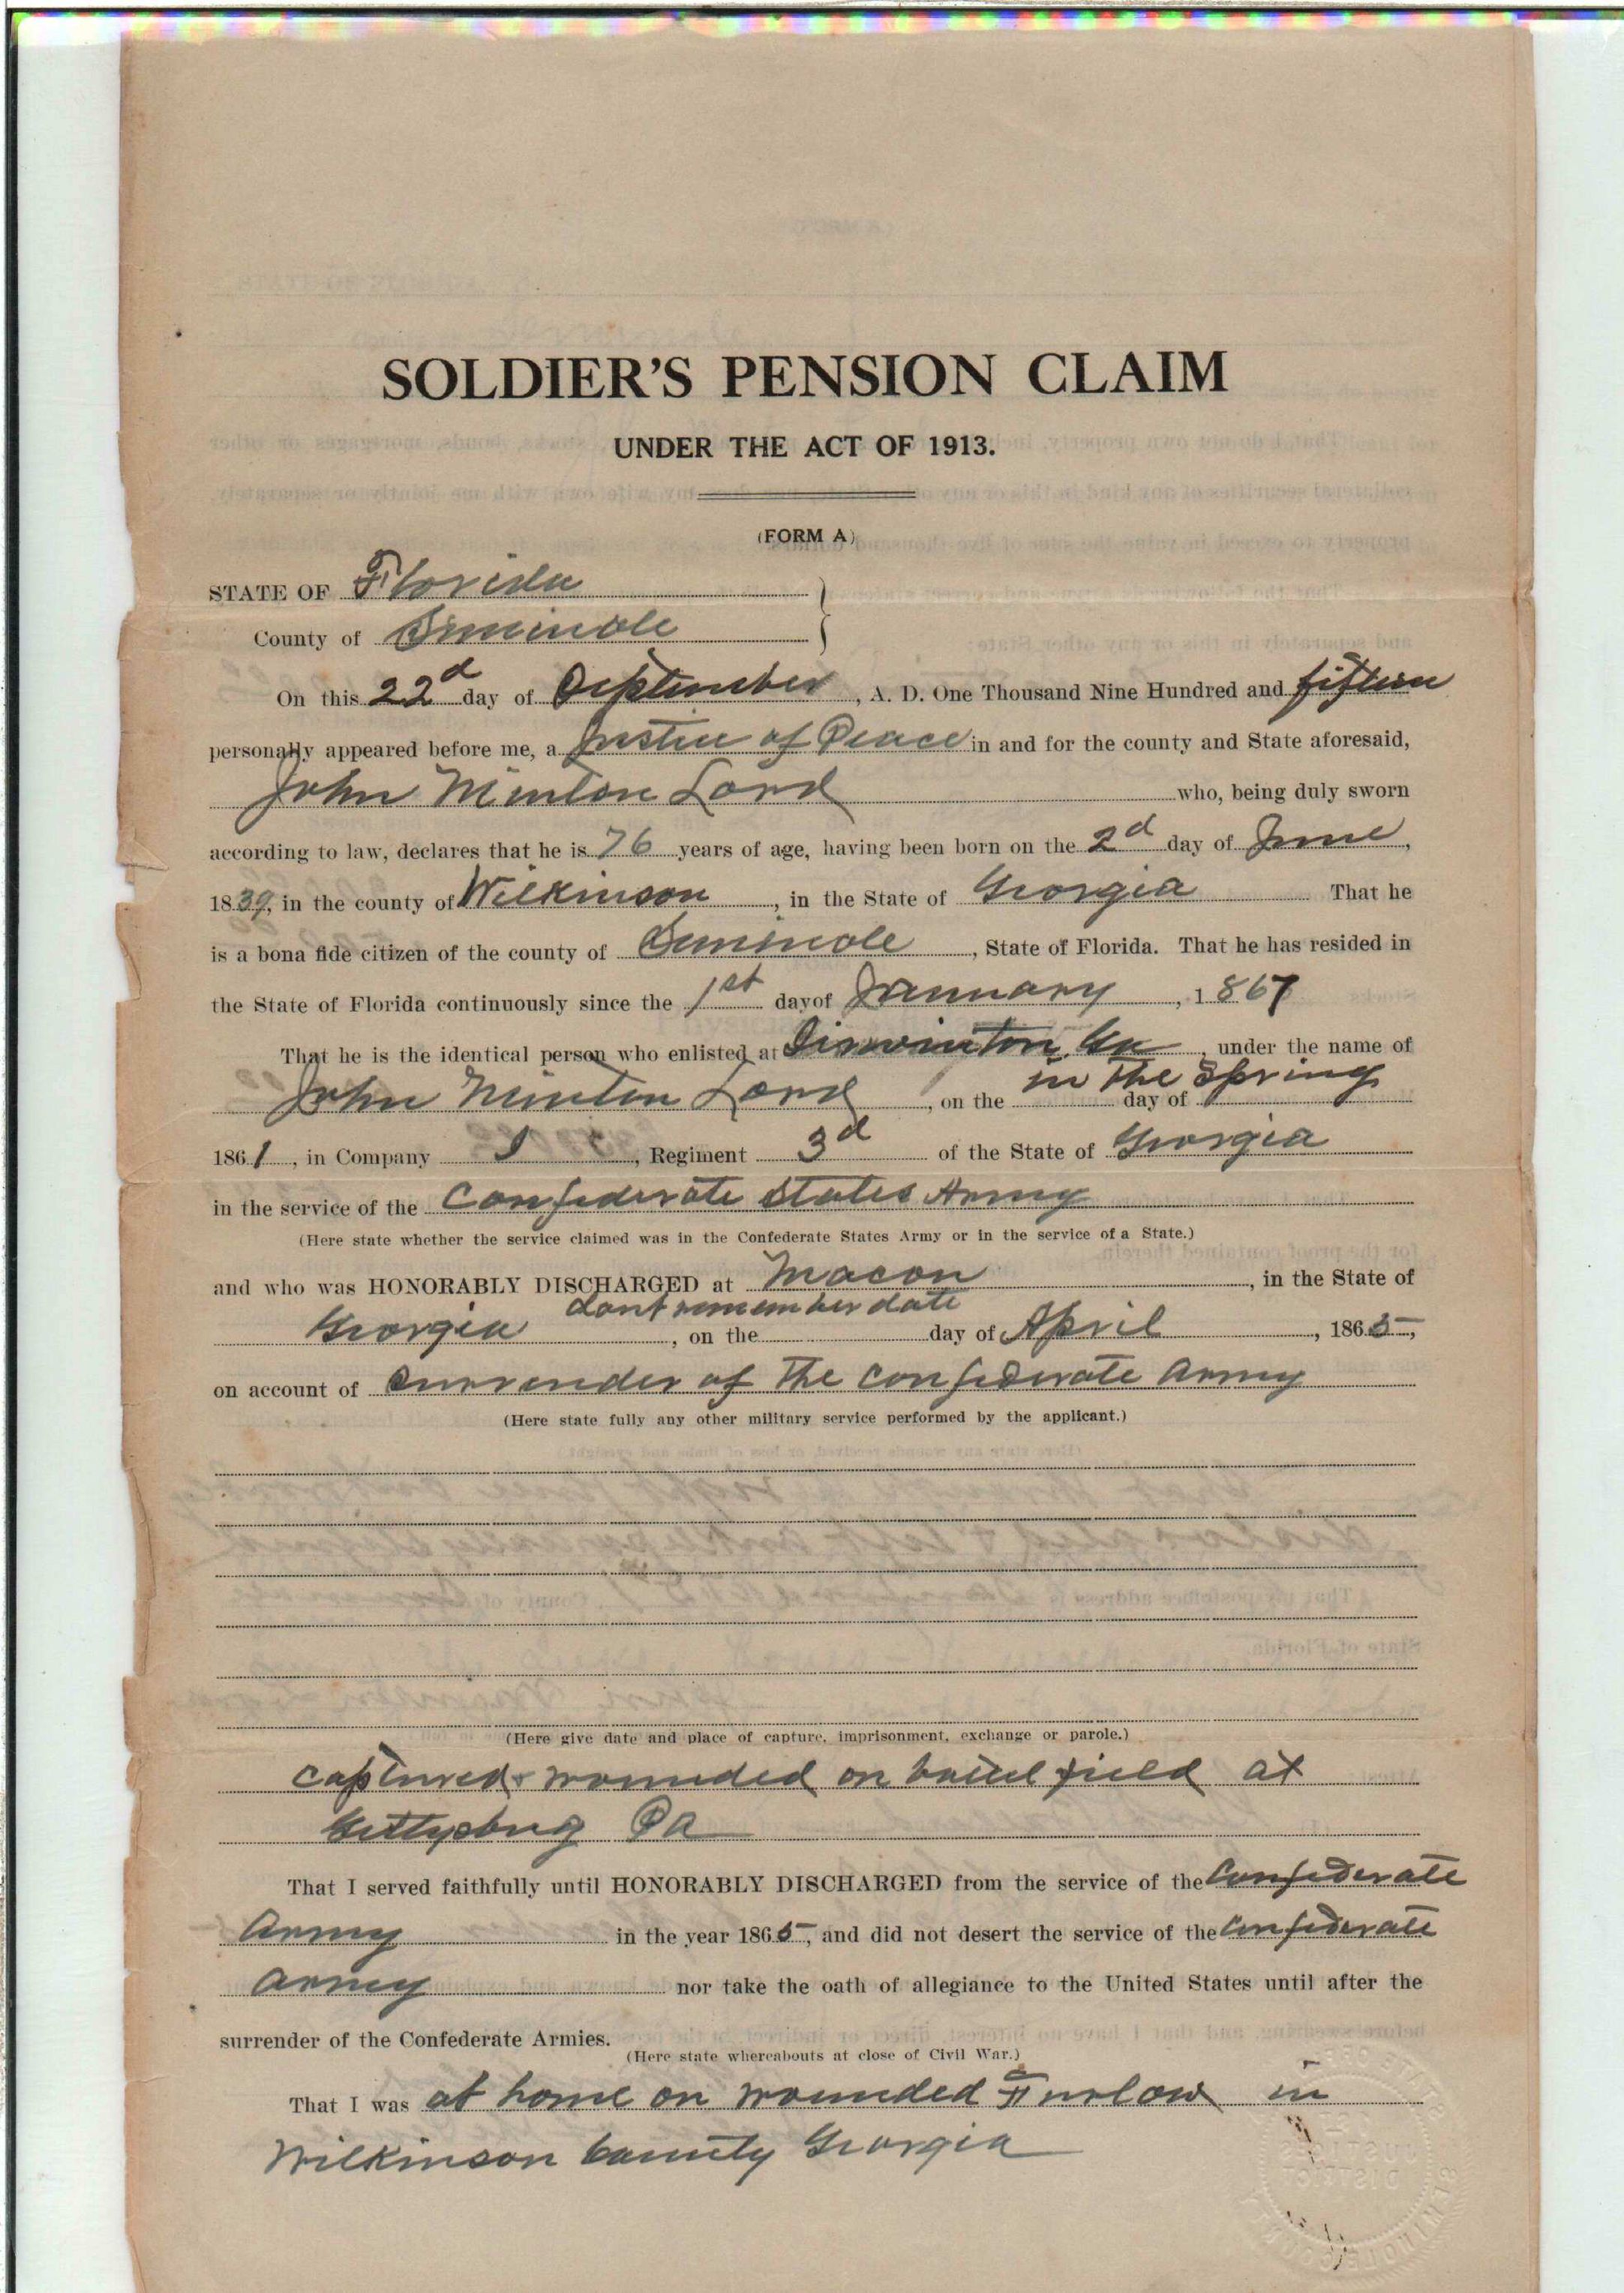 SOLDIER'S PENSION CLAIM
UNDER THE ACT OF 1913.
(FORM A)
STATE OF Florida
County of Seminole
On this 22d day of September, A. D. One Thousand Nine Hundred and fifteen
personally appeared before me, a Justice of Peace in and for the county and State aforesaid,
John Minton Lord who, being duly sworn
according to law, declares that he is 76 years of age, having been born on the 2d day of June,
1839, in the county of Wilkinson, in the State of Georgia That he
is a bona fide citizen of the county of Seminole, State of Florida. That he has resided in
the State of Florida continuously since the 1st day of January, 1867
That he is the identical person who enlisted at Ga, under the name of
John Minton Lord, on the in the Spring day of
1861, in Company I, Regiment 3d of the State of Georgia
in the service of the Confederate States Army
(Here state whether the service claimed was in the Confederate States Army or in the service of a State.)
and who was HONORABLY DISCHARGED at Macon, in the State of
Georgia, on the dont remember date day of April, 1865,
on account of Surrender of The Confederate Army
(Here state fully any other military service performed by the applicant.)
(Here give date and place of capture, imprisonment, exchange or parole.)
captured + wounded on field at
Gettysburg Pa
That I served faithfully until HONORABLY DISCHARGED from the service of the Confederate
Army in the year 1865, and did not desert the service of the Confederate
Army nor take the oath of allegiance to the United States until after the
surrender of the Confederate Armies.
(Here state whereabouts at close of Civil War.)
That I was at home on wounded Furlow in
Wilkinson County Georgia